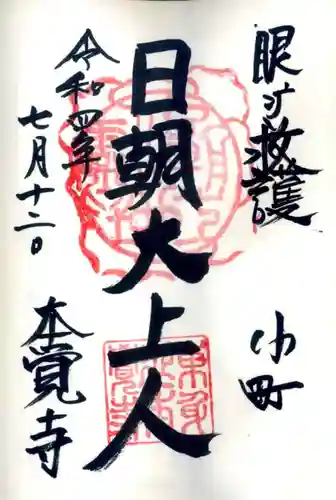 眼守救護
小町
日朝大上人
令和四年
七月十二日
本覚寺